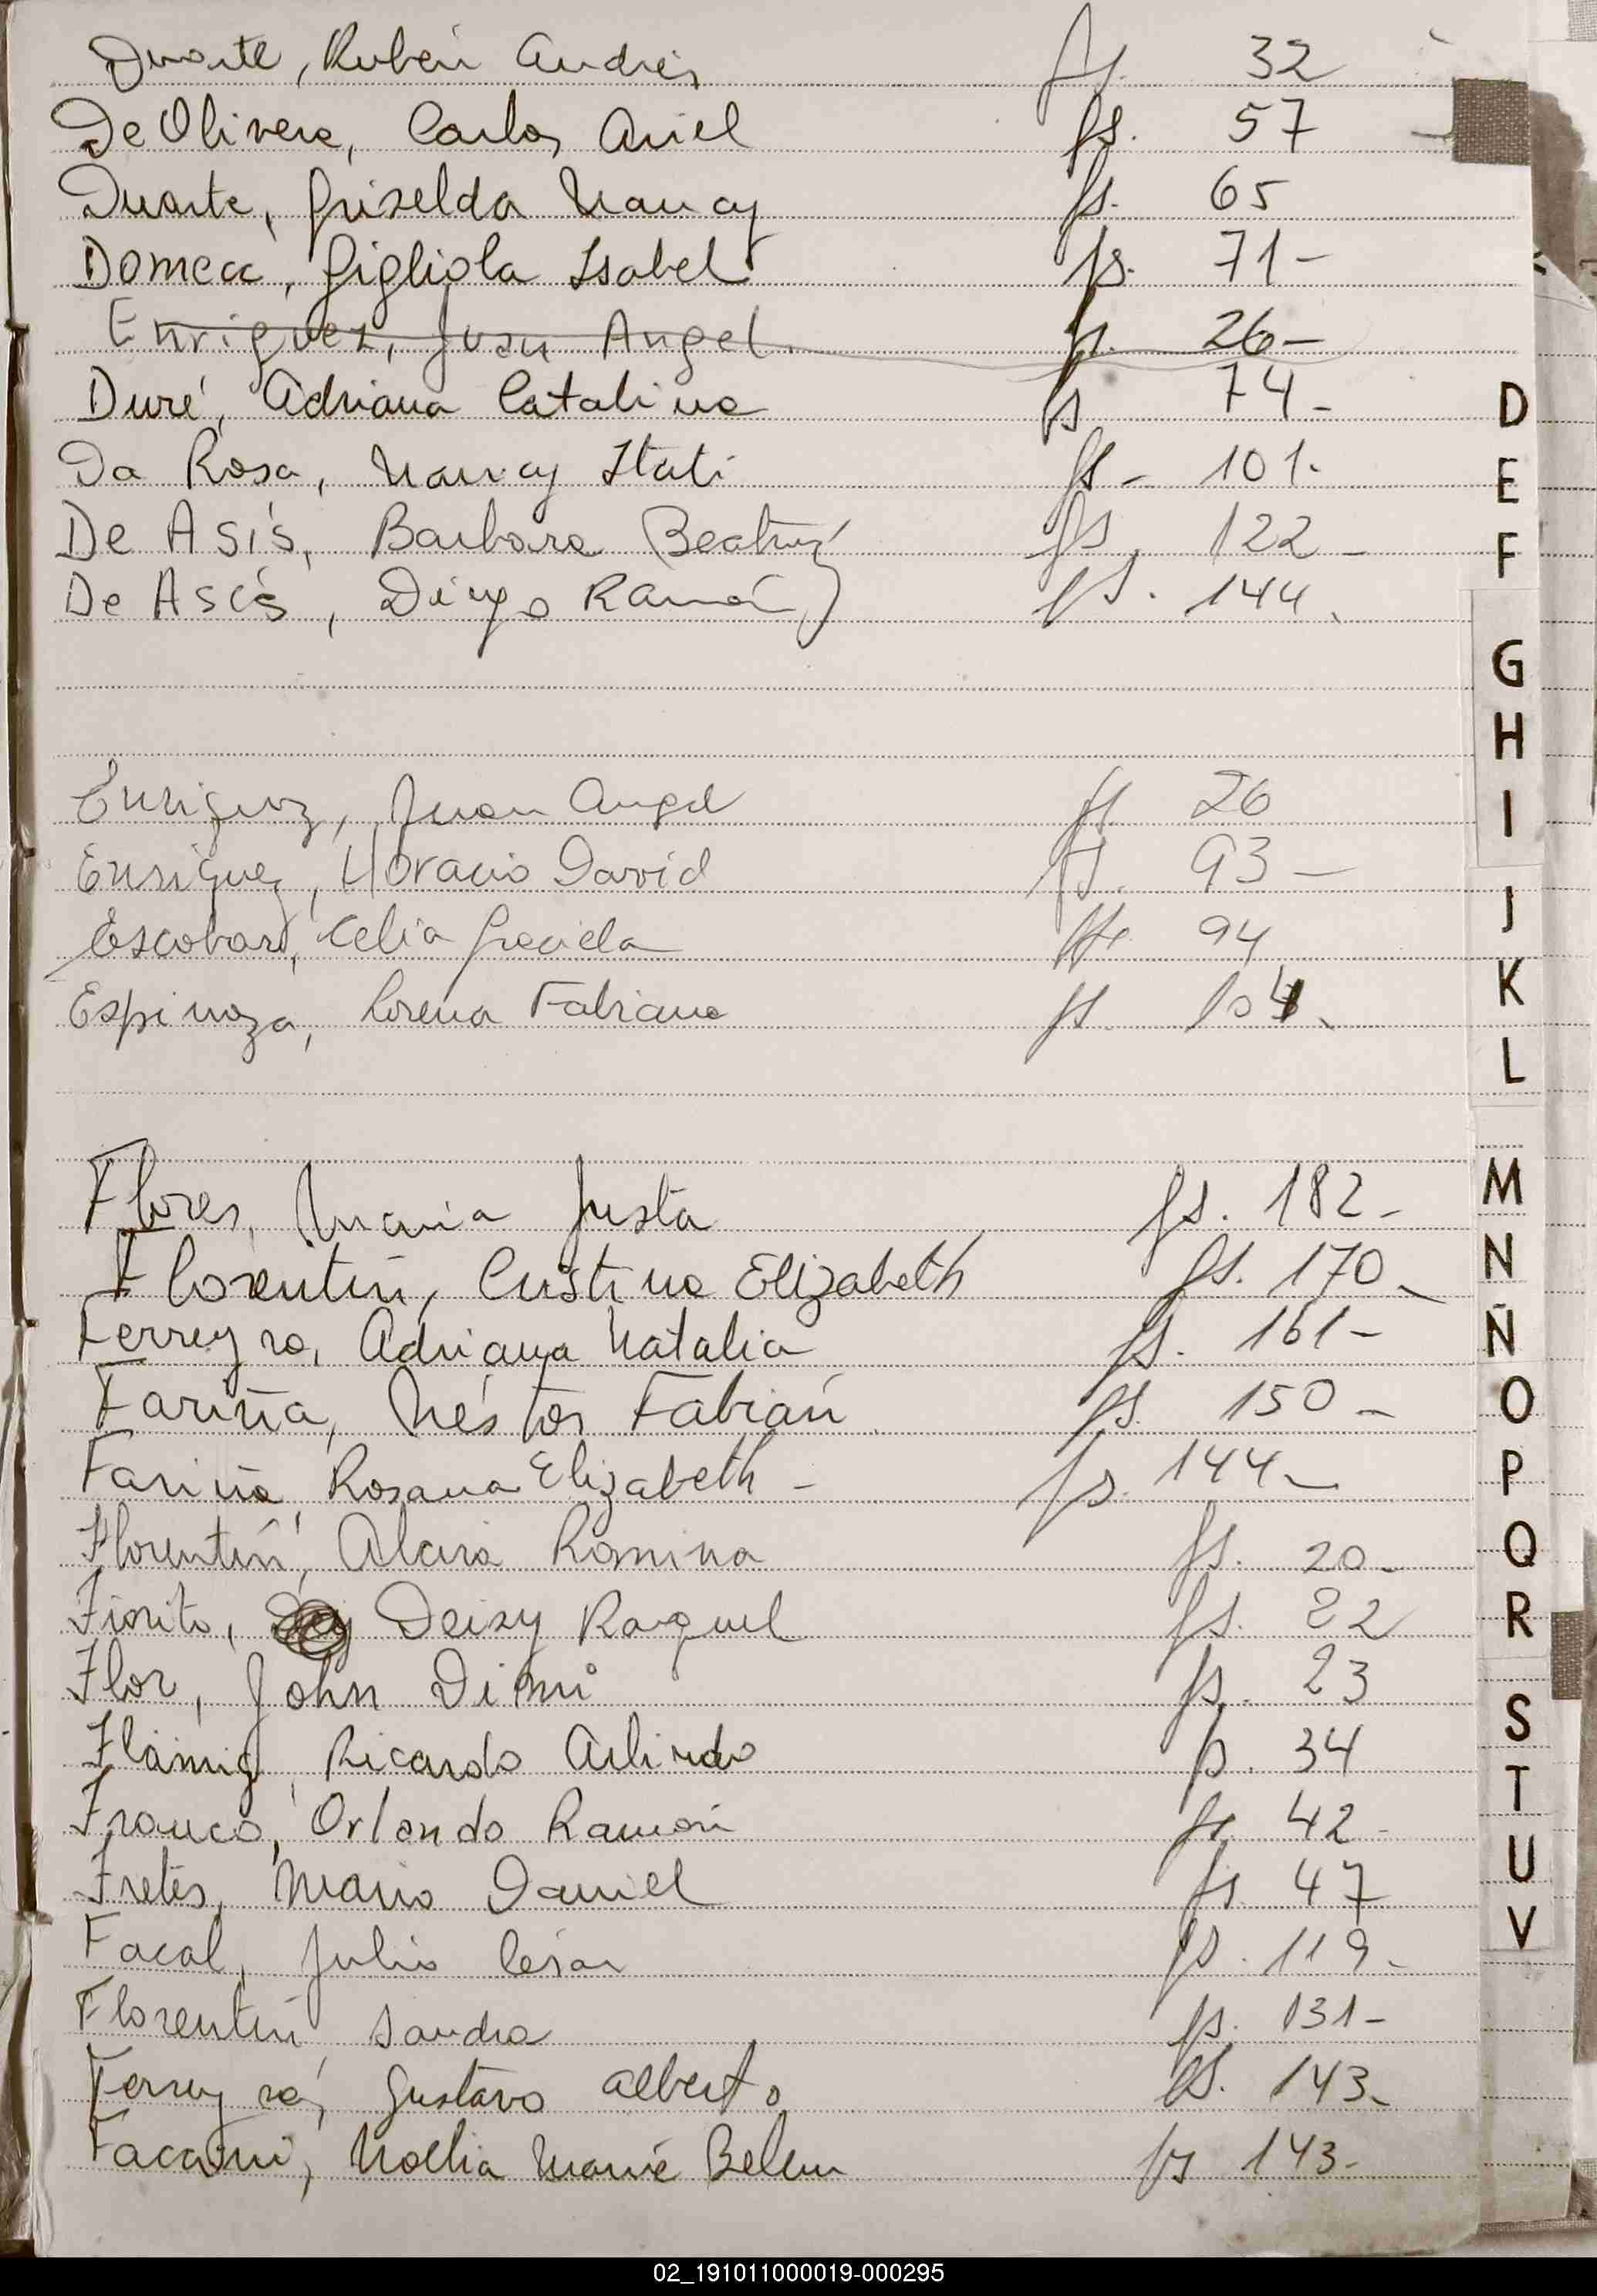 Duarte, Rubén Andrés fs. 32
De Olivera, Carlos Ariel fs. 57
Duarte, Griselda Nancy fs. 65
Domecc, Gigliola Isabel fs. 71-
Enriquez, Juan Angel. fs. 26-
Duré, Adriana Catalina fs 74-
Da Rosa, Nancy Itati fs- 101-
De Asís, Barbara Beatriz fs. 122-
De Asís, Diego Ramón fs. 144.
Enriquez, Juan Angel fs 26
Enriquez, Horacio David fs. 93-
Escobar, Celia Graciela fs. 94
Espinoza, Lorena Fabiana fs. 104.
Flores, Maria Justa fs. 182-
Florentín, Cristina Elizabeth fs. 170-
Ferreyra, Adriana Natalia fs. 161-
Fariña, Néstor Fabián fs. 150-
Fariña, Rosana Elizabeth- fs. 144-
Florentín, Alcira Romina fs. 20-
Fiorito, Deisy Raquel fs. 22
Flor, John fs. 23
Flámig, Ricardo Arlindo fs. 34
Franco, Orlando Ramón fs. 42-
Fretes, Mario Daniel fs. 47
Facal, Julio César fs. 119-
Florentín Sandra fs. 131-
Ferreyra, Gustavo Alberto fs. 143-
Noelia María Belen fs 143-
D
E
F
G
H
I
J
K
L
M
N
Ñ
O
P
Q
R
S
T
U
V
02_191011000019-000295